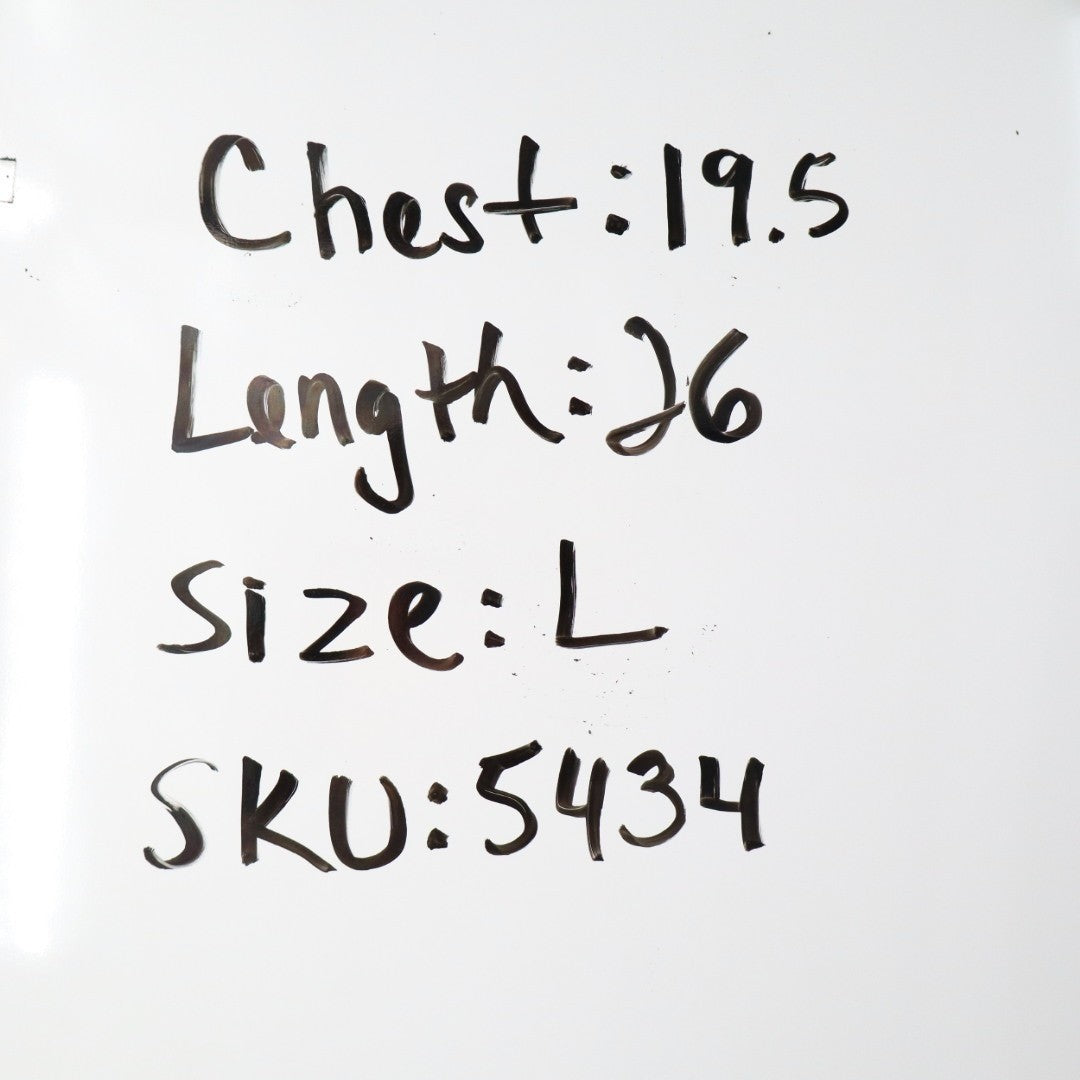 Chest: 19.5
Length: 26
Size: L
SKU: 5434